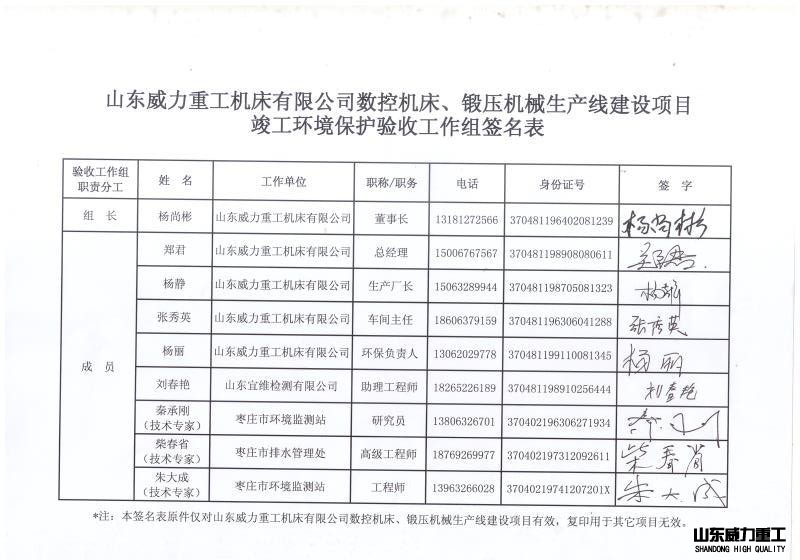 山东威力重工机床有限公司数控机床、锻压机械生产线建设项目
竣工环境保护验收工作组签名表
验收工作组职责分工 姓 名 工作单位 职称/职务 电话 身份证号 签 字
组 长 杨尚彬 山东威力重工机床有限公司 董事长 13181272566 370481196402081239 杨尚彬
成 员 郑君 山东威力重工机床有限公司 总经理 15006767567 370481198908080611
杨静 山东威力重工机床有限公司 生产厂长 15063289944 370481198705081323 杨静
张秀英 山东威力重工机床有限公司 车间主任 18606379159 370481196306041288 张秀英
杨丽 山东威力重工机床有限公司 环保负责人 13062029778 370481199110081345 杨丽
刘春艳 山东宜维检测有限公司 助理工程师 18265226189 370481198910256444 刘春艳
秦承刚（技术专家） 枣庄市环境监测站 研究员 13806326701 370402196306271934
柴春省（技术专家） 枣庄市排水管理处 高级工程师 18769269977 370402197312092611 柴春省
朱大成（技术专家） 枣庄市环境监测站 工程师 13963266028 37040219741207201X 朱大成
*注：本签名表原件仅对山东威力重工机床有限公司数控机床、锻压机械生产线建设项目有效，复印用于其它项目无效。
山东威力重工
SHANDONG HIGH QUALITY